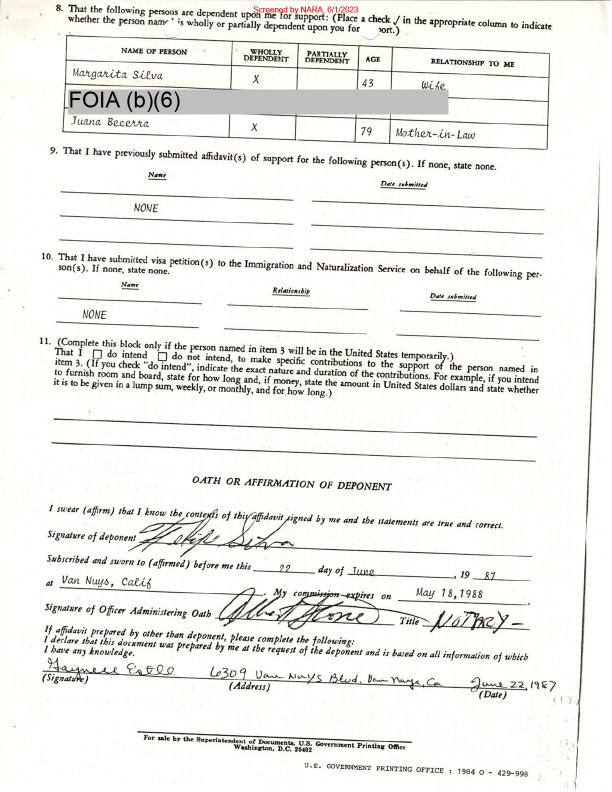 Screened by NARA, 6/1/2023
8. That the following persons are dependent upon me for support: (Place a check √ in the appropriate column to indicate
whether the person name is wholly or partially dependent upon you for port.)
NAME OF PERSON WHOLLY DEPENDENT PARTIALLY DEPENDENT AGE RELATIONSHIP TO ME
Margarita Silva X 43 Wife
FOIA (b)(6)
Juana Becerra X 79 Mother-in-Law
9. That I have previously submitted affidavit(s) of support for the following person(s). If none, state none.
Name Date submitted
NONE
10. That I have submitted visa petition(s) to the Immigration and Naturalization Service on behalf of the following per-
son(s). If none, state none.
Name Relationship Date submitted
NONE
11. (Complete this block only if the person named in item 3 will be in the United States temporarily.)
That I ☐ do intend ☐ do not intend, to make specific contributions to the support of the person named in
item 3. (If you check "do intend", indicate the exact nature and duration of the contributions. For example, if you intend
to furnish room and board, state for how long and, if money, state the amount in United States dollars and state whether
it is to be given in a lump sum, weekly, or monthly, and for how long.)
OATH OR AFFIRMATION OF DEPONENT
I swear (affirm) that I know the contents of this affidavit signed by me and the statements are true and correct.
Signature of deponent Felipe Silva
Subscribed and sworn to (affirmed) before me this 22 day of June , 19 87
at Van Nuys, Calif . My commission expires on May 18, 1988 .
Signature of Officer Administering Oath Title NOTARY-
If affidavit prepared by other than deponent, please complete the following:
I declare that this document was prepared by me at the request of the deponent and is based on all information of which
I have any knowledge.
6309 Van Nuys Blvd. Van Nuys, Ca June 22, 1987
(Signature) (Address) (Date)
For sale by the Superintendent of Documents, U.S. Government Printing Office
Washington, D.C. 20402
U.S. GOVERNMENT PRINTING OFFICE : 1984 O - 429-998